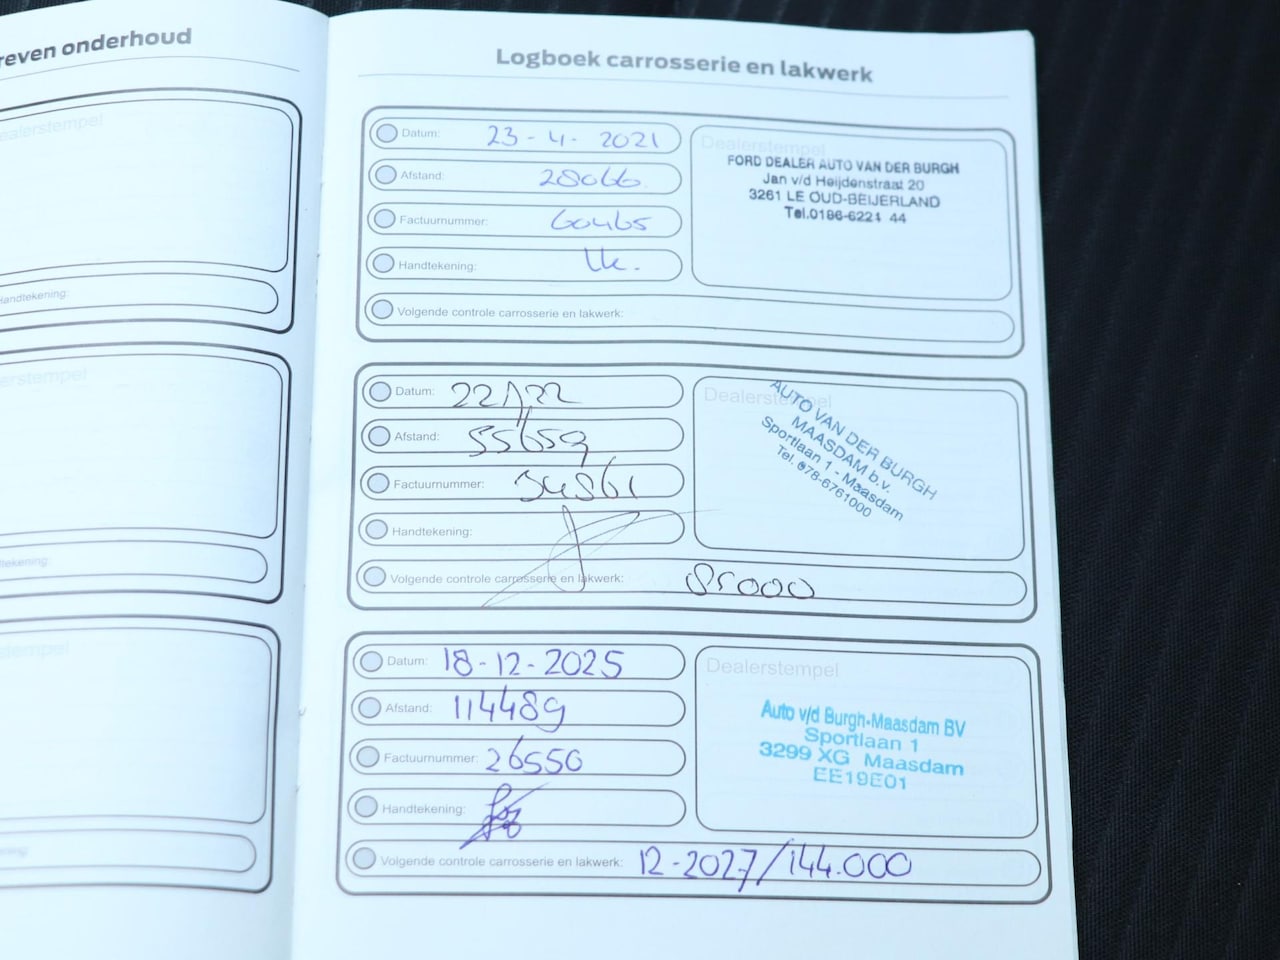 reven onderhoud
ealerstempel
Handtekening:
erstempel
tekening:
stempel
ning:
Logboek carrosserie en lakwerk
Datum: 23-4-2021
Afstand: 28066
Factuurnummer: 60465
Handtekening:
Volgende controle carrosserie en lakwerk:
Dealerstempel
FORD DEALER AUTO VAN DER BURGH
Jan v/d Heijdenstraat 20
3261 LE OUD-BEIJERLAND
Tel.0186-6221 44
Datum:
Afstand: 55659
Factuurnummer: 34861
Handtekening:
Volgende controle carrosserie en lakwerk: 85000
Dealerstempel
AUTO VAN DER BURGH
MAASDAM b.v.
Sportlaan 1 - Maasdam
Tel. 078-6761000
Datum: 18-12-2025
Afstand: 114489
Factuurnummer: 26550
Handtekening:
Volgende controle carrosserie en lakwerk: 12-2027/144.000
Dealerstempel
Auto v/d Burgh-Maasdam BV
Sportlaan 1
3299 XG Maasdam
EE19E01